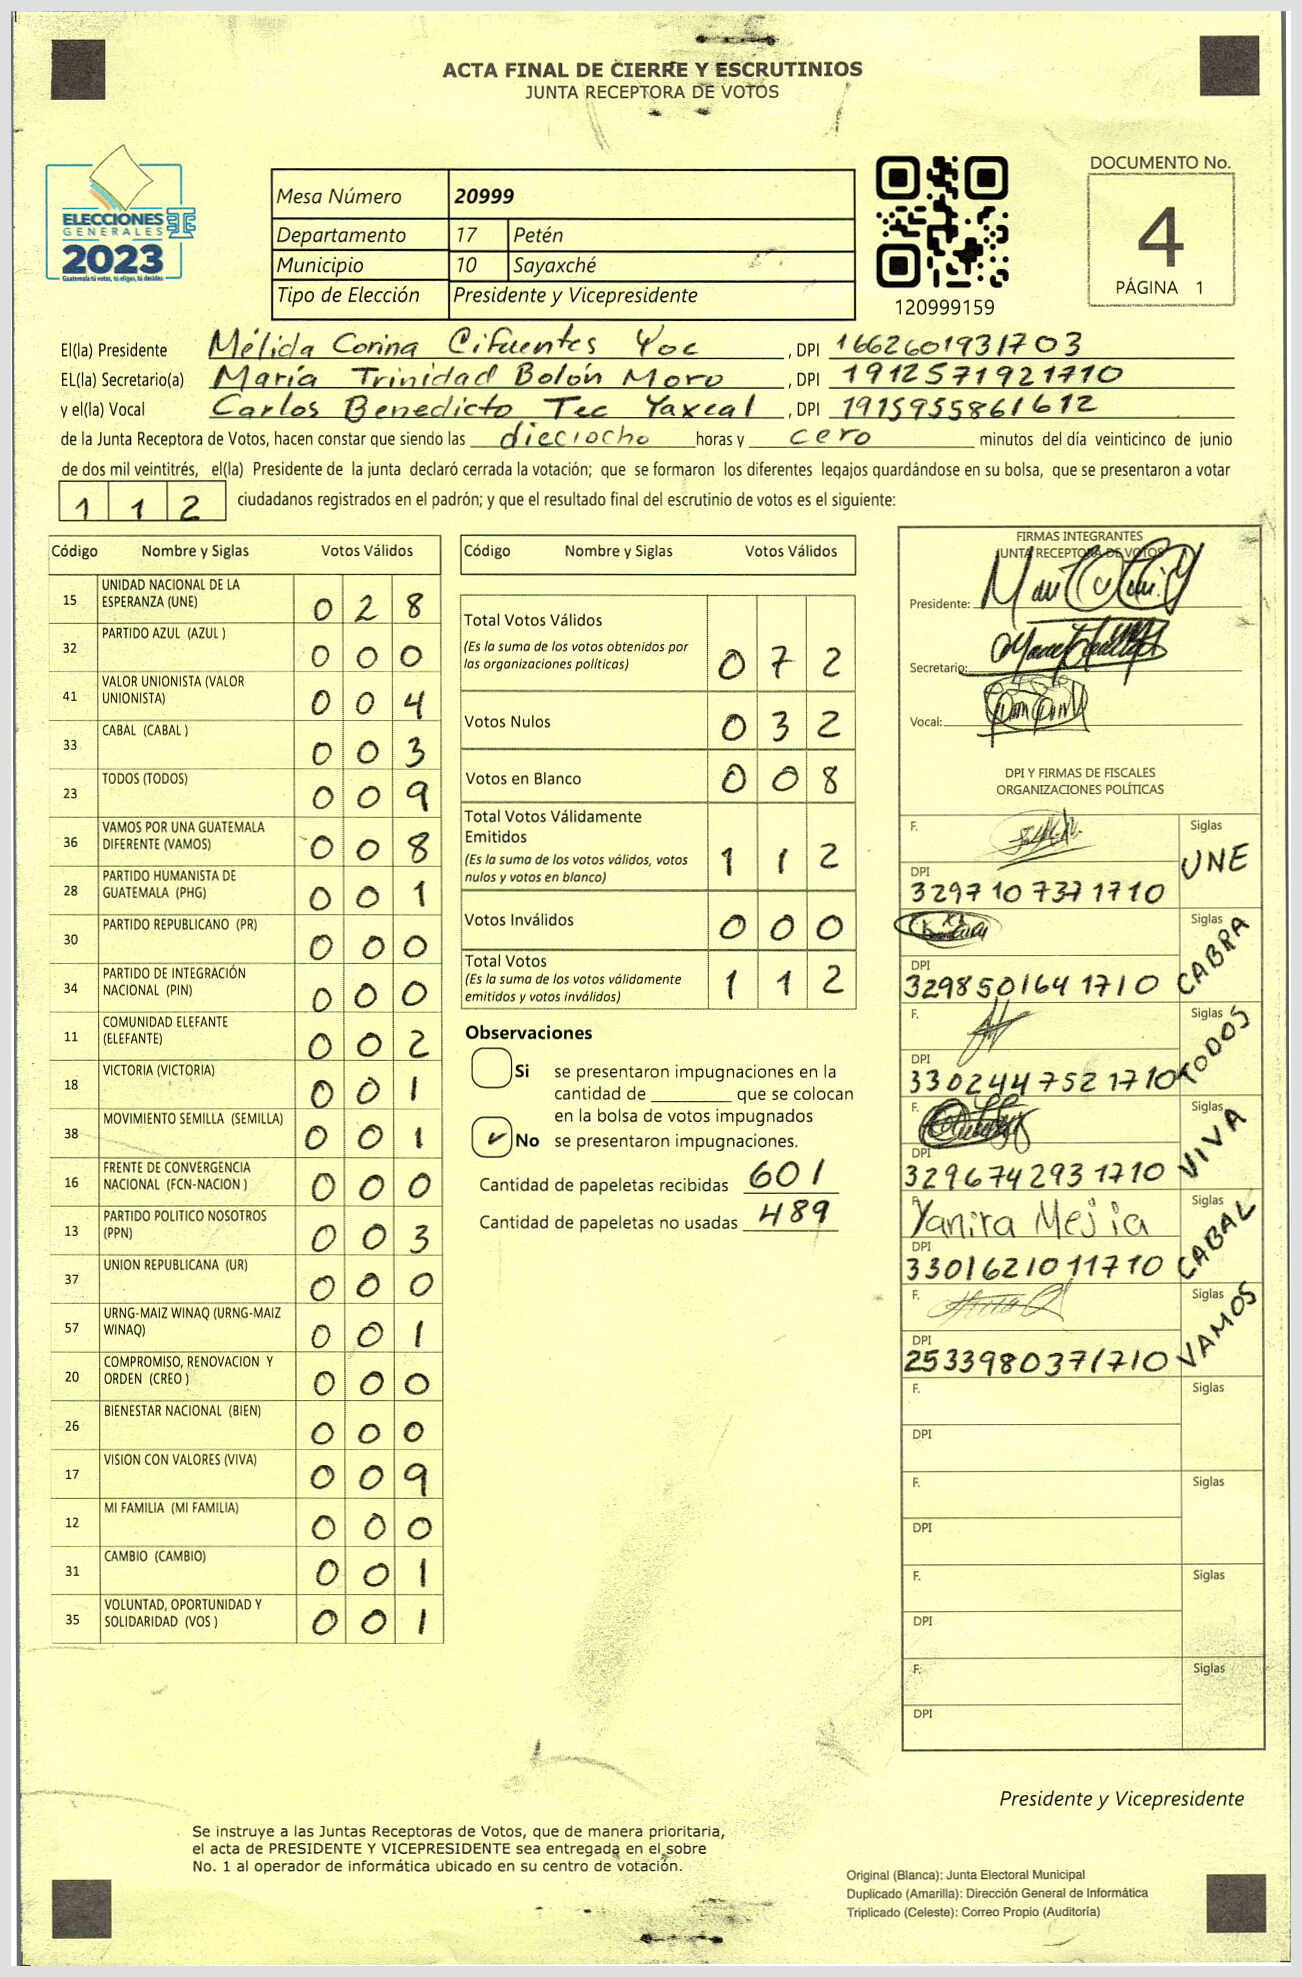 ACTA FINAL DE CIERRE Y ESCRUTINIOS
JUNTA RECEPTORA DE VOTOS
ELECCIONES
GENERALES
2023
Guatemala tú votas, tú eliges, tú decides
Mesa Número 20999
Departamento 17 Petén
Municipio 10 Sayaxché
Tipo de Elección Presidente y Vicepresidente
120999159
DOCUMENTO No.
4
PÁGINA 1
El(la) Presidente Mélida Corina Cifuentes Yoc , DPI 1662601931703
EL(la) Secretario(a) María Trinidad Bolón Moro , DPI 1912571921710
y el(la) Vocal Carlos Benedicto Tec Yaxcal , DPI 1915955861612
de la Junta Receptora de Votos, hacen constar que siendo las dieciocho horas y cero minutos del día veinticinco de junio
de dos mil veintitrés, el(la) Presidente de la junta declaró cerrada la votación; que se formaron los diferentes legajos guardándose en su bolsa, que se presentaron a votar
1 1 2 ciudadanos registrados en el padrón; y que el resultado final del escrutinio de votos es el siguiente:
Código Nombre y Siglas Votos Válidos
15 UNIDAD NACIONAL DE LA ESPERANZA (UNE) 0 2 8
32 PARTIDO AZUL (AZUL ) 0 0 0
41 VALOR UNIONISTA (VALOR UNIONISTA) 0 0 4
33 CABAL (CABAL ) 0 0 3
23 TODOS (TODOS) 0 0 9
36 VAMOS POR UNA GUATEMALA DIFERENTE (VAMOS) 0 0 8
28 PARTIDO HUMANISTA DE GUATEMALA (PHG) 0 0 1
30 PARTIDO REPUBLICANO (PR) 0 0 0
34 PARTIDO DE INTEGRACIÓN NACIONAL (PIN) 0 0 0
11 COMUNIDAD ELEFANTE (ELEFANTE) 0 0 2
18 VICTORIA (VICTORIA) 0 0 1
38 MOVIMIENTO SEMILLA (SEMILLA) 0 0 1
16 FRENTE DE CONVERGENCIA NACIONAL (FCN-NACION ) 0 0 0
13 PARTIDO POLITICO NOSOTROS (PPN) 0 0 3
37 UNION REPUBLICANA (UR) 0 0 0
57 URNG-MAIZ WINAQ (URNG-MAIZ WINAQ) 0 0 1
20 COMPROMISO, RENOVACION Y ORDEN (CREO ) 0 0 0
26 BIENESTAR NACIONAL (BIEN) 0 0 0
17 VISION CON VALORES (VIVA) 0 0 9
12 MI FAMILIA (MI FAMILIA) 0 0 0
31 CAMBIO (CAMBIO) 0 0 1
35 VOLUNTAD, OPORTUNIDAD Y SOLIDARIDAD (VOS ) 0 0 1
Código Nombre y Siglas Votos Válidos
Total Votos Válidos
(Es la suma de los votos obtenidos por
las organizaciones políticas) 0 7 2
Votos Nulos 0 3 2
Votos en Blanco 0 0 8
Total Votos Válidamente
Emitidos
(Es la suma de los votos válidos, votos
nulos y votos en blanco) 1 1 2
Votos Inválidos 0 0 0
Total Votos
(Es la suma de los votos válidamente
emitidos y votos inválidos) 1 1 2
Observaciones
Si se presentaron impugnaciones en la
cantidad de ________ que se colocan
en la bolsa de votos impugnados
✓ No se presentaron impugnaciones.
Cantidad de papeletas recibidas 601
Cantidad de papeletas no usadas 489
FIRMAS INTEGRANTES
JUNTA RECEPTORA DE VOTOS
Presidente:
Secretario:
Vocal:
DPI Y FIRMAS DE FISCALES
ORGANIZACIONES POLÍTICAS
F. Siglas UNE
DPI 3297107371710
Siglas CABRA
DPI 3298501641710
F. Siglas TODOS
DPI 3302447521710
F. Siglas VIVA
DPI 3296742931710
F. Yanira Mejia Siglas CABAL
DPI 3301621011710
F. Siglas VAMOS
DPI 2533980371710
F. Siglas
DPI
F. Siglas
DPI
F. Siglas
DPI
F. Siglas
DPI
Presidente y Vicepresidente
Se instruye a las Juntas Receptoras de Votos, que de manera prioritaria,
el acta de PRESIDENTE Y VICEPRESIDENTE sea entregada en el sobre
No. 1 al operador de informática ubicado en su centro de votación.
Original (Blanca): Junta Electoral Municipal
Duplicado (Amarilla): Dirección General de Informática
Triplicado (Celeste): Correo Propio (Auditoría)